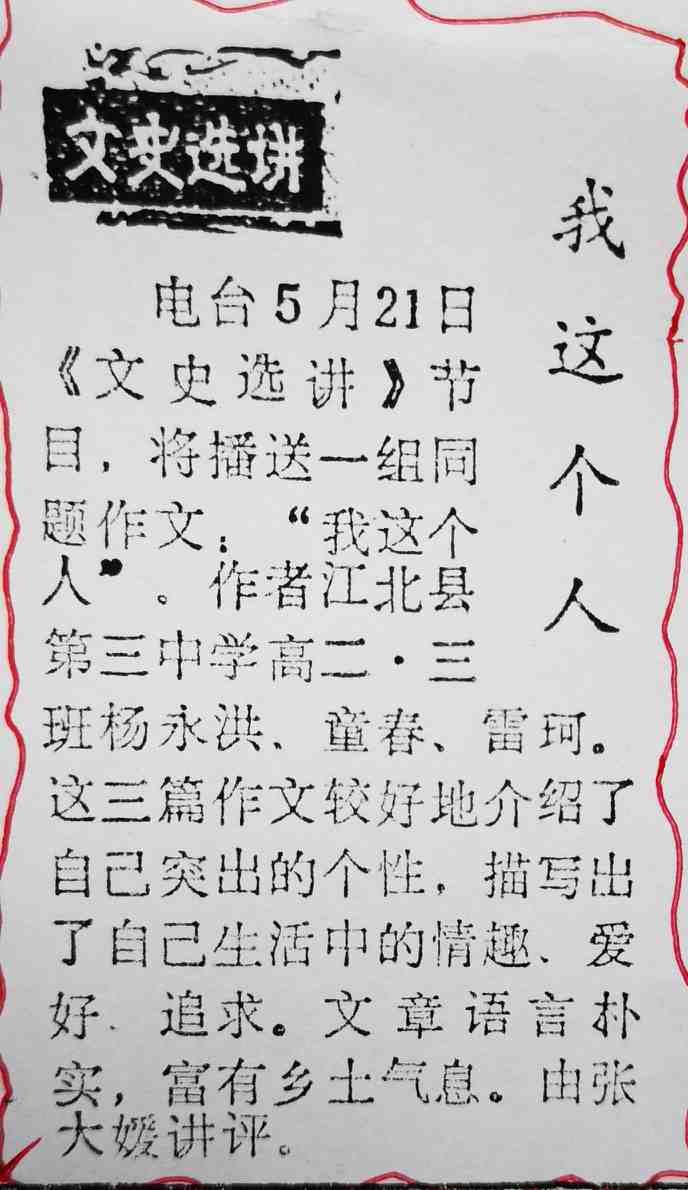 文史选讲
我这个人
电台5月21日
《文史选讲》节
目，将播送一组同
题作文：“我这个
人”。作者江北县
第三中学高二·三
班杨永洪、童春、雷珂。
这三篇作文较好地介绍了
自己突出的个性，描写出
了自己生活中的情趣、爱
好、追求。文章语言朴
实，富有乡土气息。由张
大媛讲评。